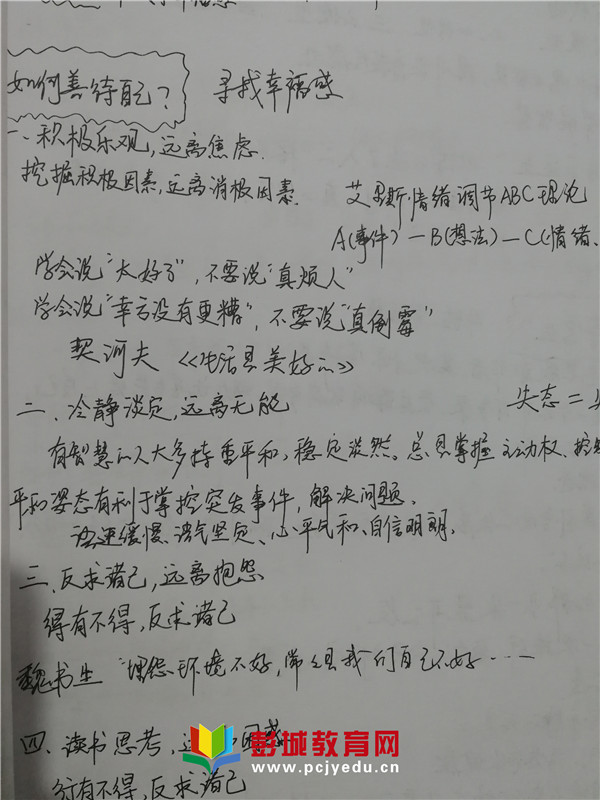 如何善待自己？ 寻找幸福感
一、积极乐观，远离焦虑.
挖掘积极因素，远离消极因素. 艾里斯·情绪调节ABC理论
A(事件) — B(想法) — C(情绪.
学会说“太好了”，不要说“真烦人”
学会说“幸亏没有更糟”，不要说“真倒霉”
契诃夫 《生活是美好的》
二、冷静淡定，远离无能 失态 =
有智慧的人大多持重平和，稳定淡然。总是掌握主动权、控
平和姿态有利于掌控突发事件，解决问题.
语速缓慢、语气坚定、心平气和、自信明朗.
三、反求诸己，远离抱怨
得有不得，反求诸己
魏书生 “埋怨环境不好，常是我们自己不好……
四、读书思考，远 困惑
行有不得，反求诸己
彭城教育网
www.pcjyedu.cn